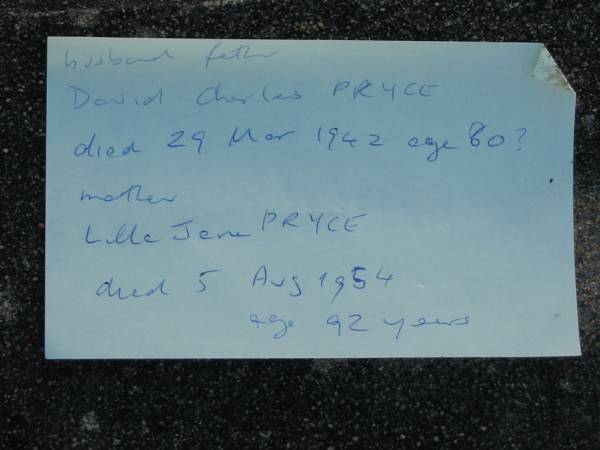 husband father
David Charles PRYCE
died 29 Mar 1942 age 80?
mother
Lilla Jane PRYCE
died 5 Aug 1954
age 92 years